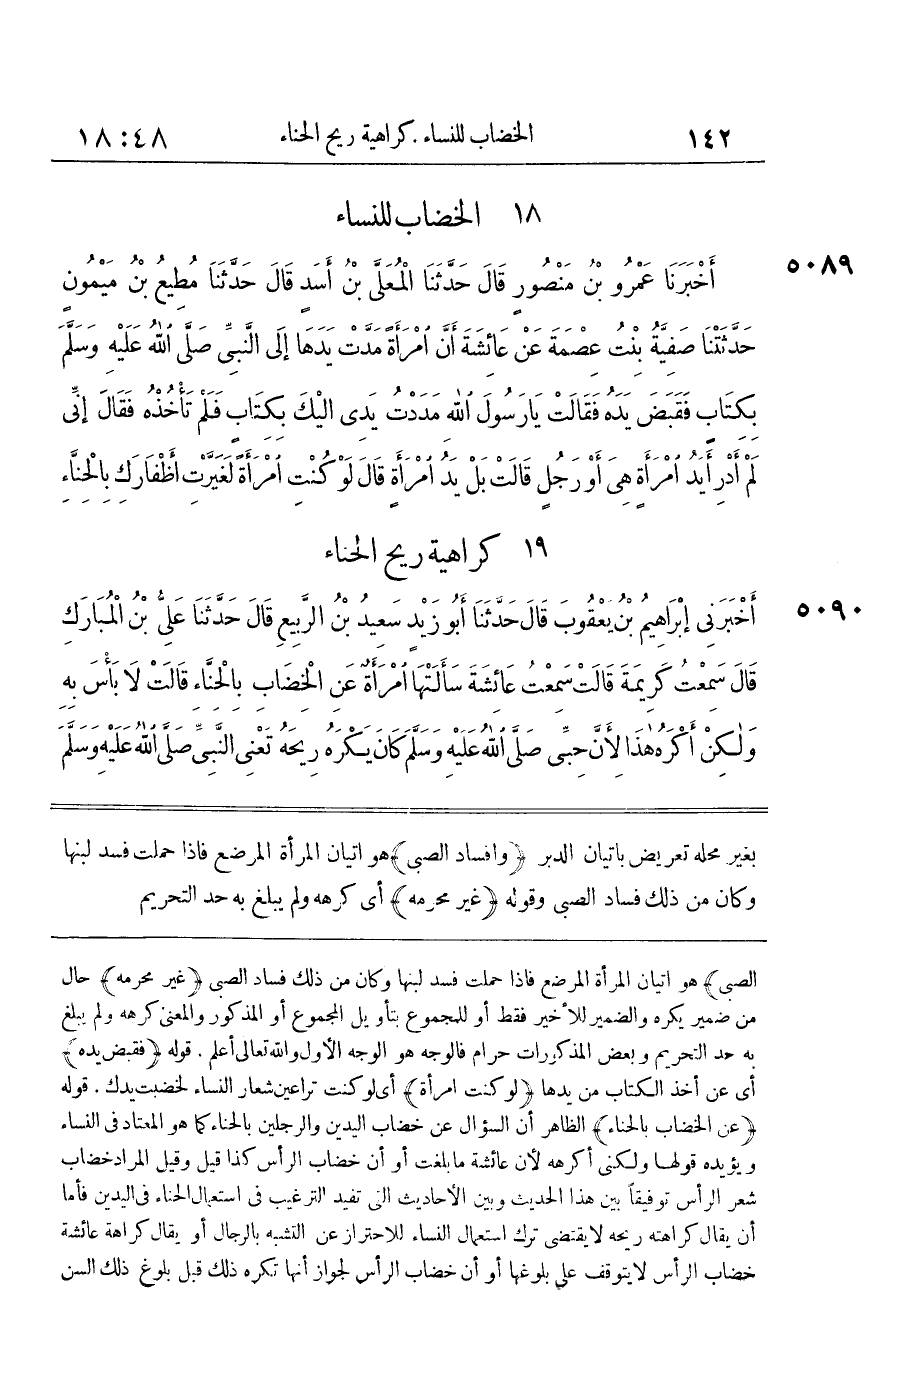 ١٤٢ الخضاب للنساء . كراهية ريح الحناء ١٨:٤٨
١٨ الخضاب للنساء
٥٠٨٩ أَخْبَرَنَا عَمْرُو بْنُ مَنْصُورٍ قَالَ حَدَّثَنَا الْمُعَلَّى بْنُ أَسَدٍ قَالَ حَدَّثَنَا مُطِيعُ بْنُ مَيْمُونٍ
حَدَّثَتْنَا صَفِيَّةُ بِنْتُ عِصْمَةَ عَنْ عَائِشَةَ أَنَّ ٱمْرَأَةً مَدَّتْ يَدَهَا إِلَى النَّبِيِّ صَلَّى ٱللهُ عَلَيْهِ وَسَلَّمَ
بِكِتَابٍ فَقَبَضَ يَدَهُ فَقَالَتْ يَارَسُولَ ٱللهِ مَدَدْتُ يَدِى الَيْكَ بِكِتَابٍ فَلَمْ تَأْخُذْهُ فَقَالَ إِنِّى
لَمْ أَدْرِ أَيَدُ ٱمْرَأَةٍ هِىَ أَوْ رَجُلٍ قَالَتْ بَلْ يَدُ ٱمْرَأَةٍ قَالَ لَوْ كُنْتِ ٱمْرَأَةً لَغَيَّرْتِ أَظْفَارَكِ بِالْحِنَّاءِ
١٩ كراهية ريح الحناء
٥٠٩٠ أَخْبَرَنِى إِبْرَاهِيمُ بْنُ يَعْقُوبَ قَالَ حَدَّثَنَا أَبُو زَيْدٍ سَعِيدُ بْنُ الرَّبِيعِ قَالَ حَدَّثَنَا عَلِىُّ بْنُ الْمُبَارَكِ
قَالَ سَمِعْتُ كَرِيمَةَ قَالَتْ سَمِعْتُ عَائِشَةَ سَأَلَتْهَا ٱمْرَأَةٌ عَنِ الْخِضَابِ بِالْحِنَّاءِ قَالَتْ لَا بَأْسَ بِهِ
وَلٰكِنْ أَكْرَهُ هٰذَا لِأَنَّ حِبِّى صَلَّى ٱللهُ عَلَيْهِ وَسَلَّمَ كَانَ يَكْرَهُ رِيحَهُ تَعْنِى النَّبِيَّ صَلَّى ٱللهُ عَلَيْهِ وَسَلَّمَ
بغير محله تعريض باتيان الدبر ﴿وافساد الصبى﴾ هو اتيان المرأة المرضع فاذا حملت فسد لبنها
وكان من ذلك فساد الصبى وقوله ﴿غير محرمه﴾ أى كرهه ولم يبلغ به حد التحريم
الصبى﴾ هو اتيان المرأة المرضع فاذا حملت فسد لبنها وكان من ذلك فساد الصبى ﴿غير محرمه﴾ حال
من ضمير يكره والضمير للأخير فقط أو للمجموع بتأويل المجموع أو المذكور والمعنى كرهه ولم يبلغ
به حد التحريم وبعض المذكورات حرام فالوجه هو الوجه الأول والله تعالى أعلم . قوله ﴿فقبض يده﴾
أى عن أخذ الكتاب من يدها ﴿لو كنت امرأة﴾ أى لو كنت تراعين شعار النساء لخضبت يدك . قوله
﴿عن الخضاب بالحناء﴾ الظاهر أن السؤال عن خضاب اليدين والرجلين بالحناء كما هو المعتاد فى النساء
ويؤيده قولها ولكنى أكرهه لأن عائشة ما بلغت أو أن خضاب الرأس كذا قيل وقيل المراد خضاب
شعر الرأس توفيقاً بين هذا الحديث وبين الأحاديث التى تفيد الترغيب فى استعمال الحناء فى اليدين فأما
أن يقال كراهته ريحه لا يقتضى ترك استعمال النساء للاحتراز عن التشبه بالرجال أو يقال كراهة عائشة
خضاب الرأس لا يتوقف على بلوغها أو أن خضاب الرأس لجواز أنها تكره ذلك قبل بلوغ ذلك السن